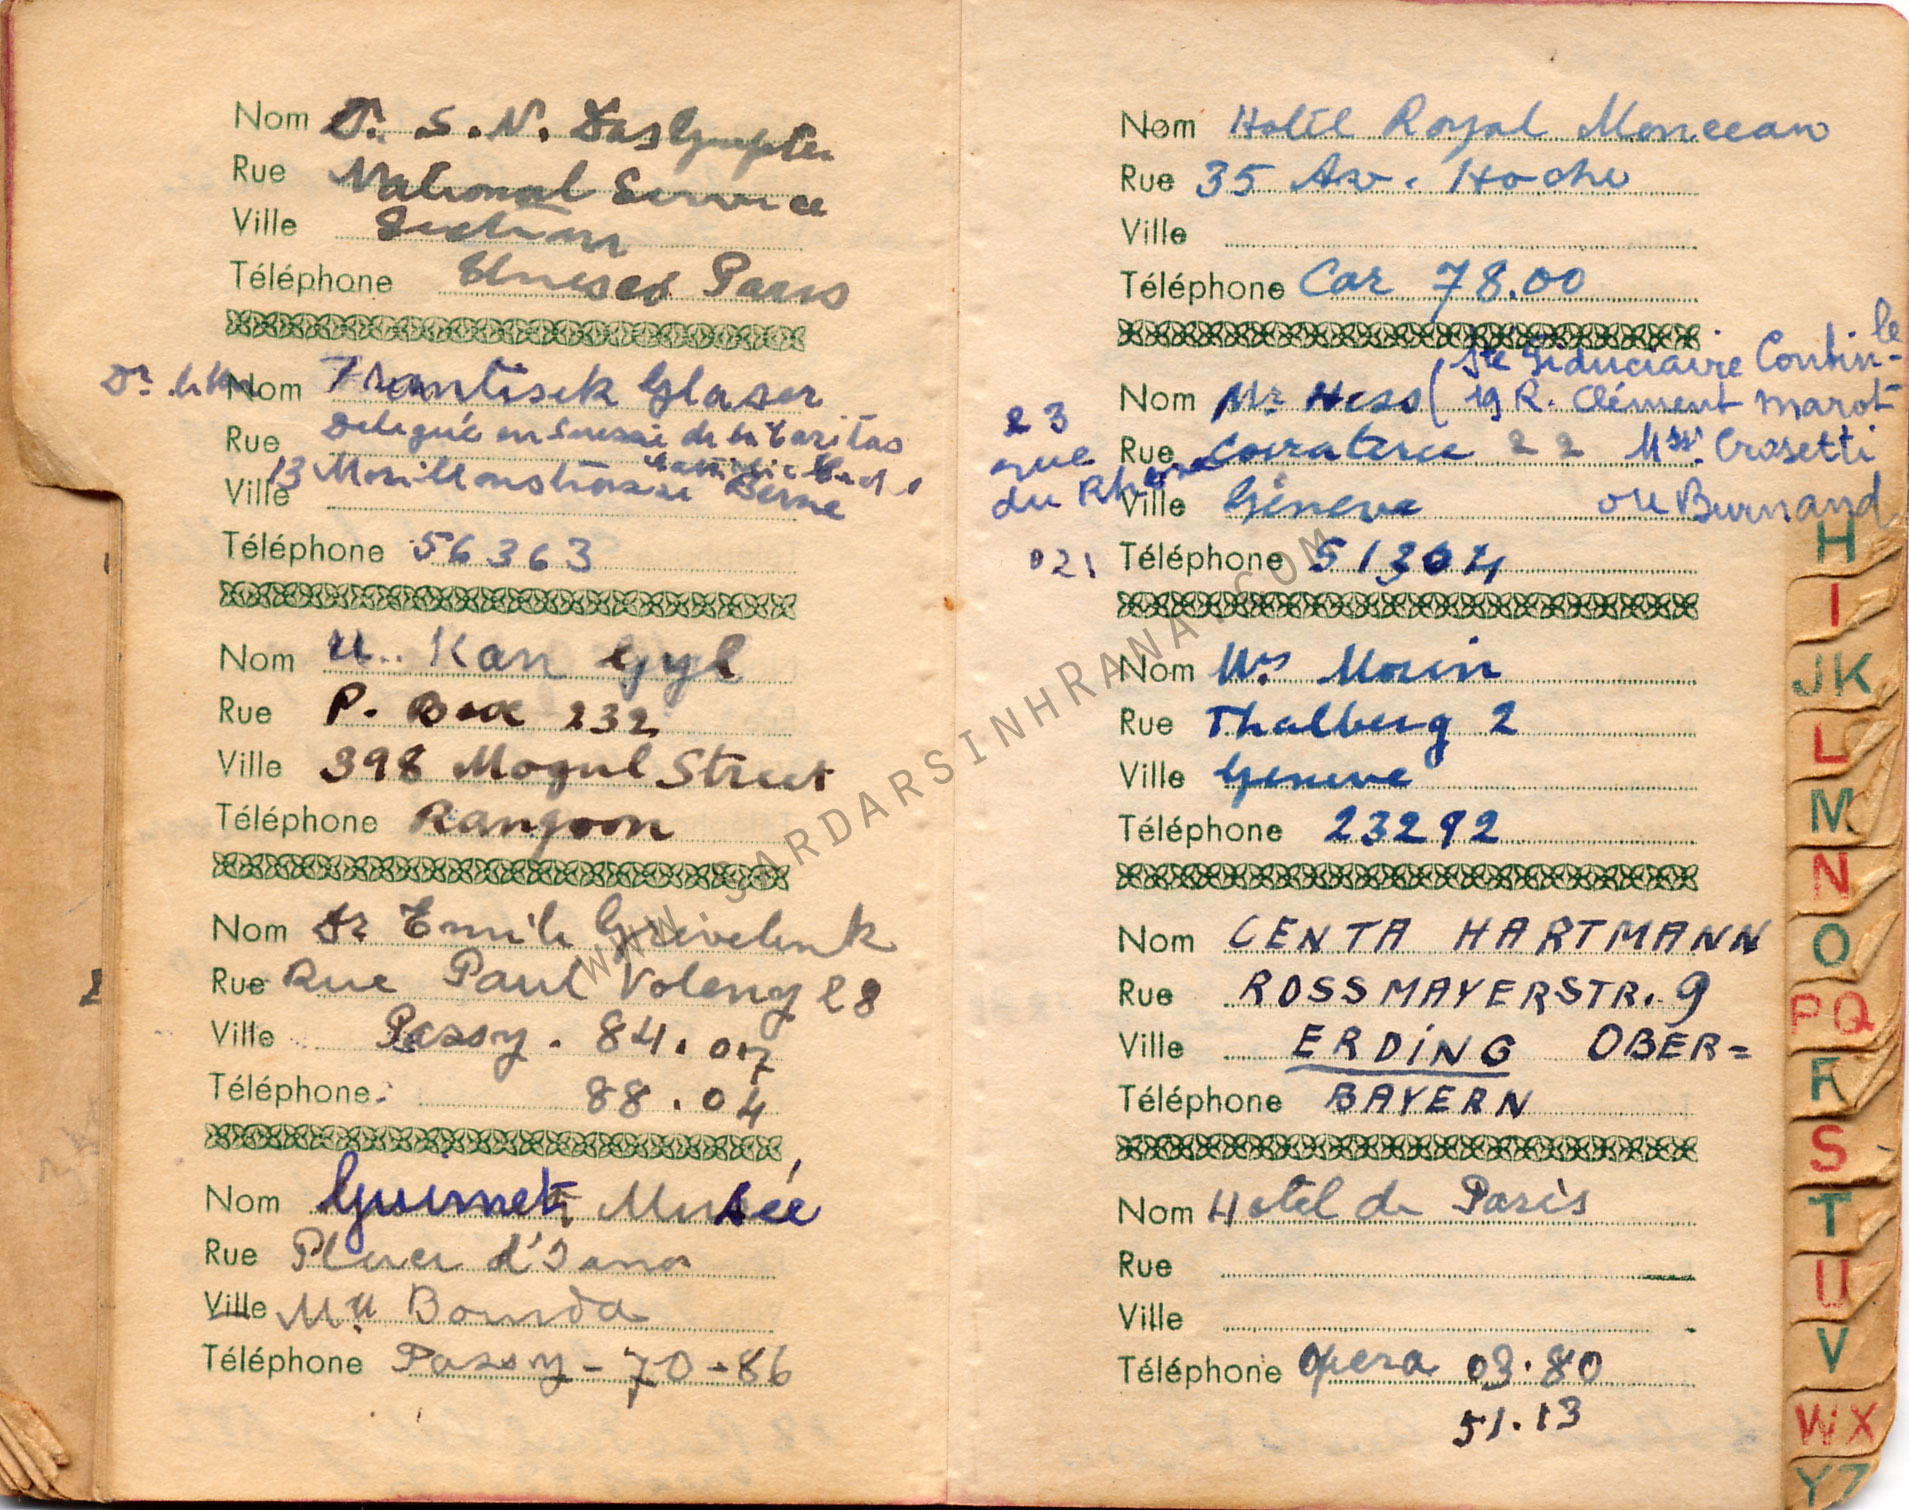 Nom Dr. S. N. Das Gupta
Rue National Service
Ville Section
Téléphone Unesco Paris
Dr.
Nom Frantisek Glaser
Rue Delegué en Suisse de la Caritas
Ville 13 Morillonstrasse Berne
Téléphone 56363
Nom U. Kan Gyi
Rue P. Box 232
Ville 398 Mogul Street
Téléphone Rangoon
Nom Dr Emile Grevelink
Rue Rue Paul Valery 28
Ville Passy. 84.07
Téléphone 88.04
Nom Guimet, Musée
Rue Place d'Iena
Ville Mll
Téléphone Passy-70-86
Nom Hotel Royal Monceau
Rue 35 Av. Hoche
Ville
Téléphone Car 78.00
Nom Mr Hess (Sté Fiduciaire Contin-le
19 R. Clément Marot
23 rue du Rhone
Rue Corraterie 22 Mssr. Crosetti
Ville Géneve ou Burnand
021 Téléphone 51304
Nom Mrs Morin
Rue Thalberg 2
Ville Geneve
Téléphone 23292
Nom CENTA HARTMANN
Rue ROSSMAYERSTR. 9
Ville ERDING OBER=
Téléphone BAYERN
Nom Hotel de Paris
Rue
Ville
Téléphone Opera 03.80
51.13
H
I
JK
L
M
N
O
PQ
R
S
T
U
V
WX
YZ
WWW.SARDARSINHRANA.COM